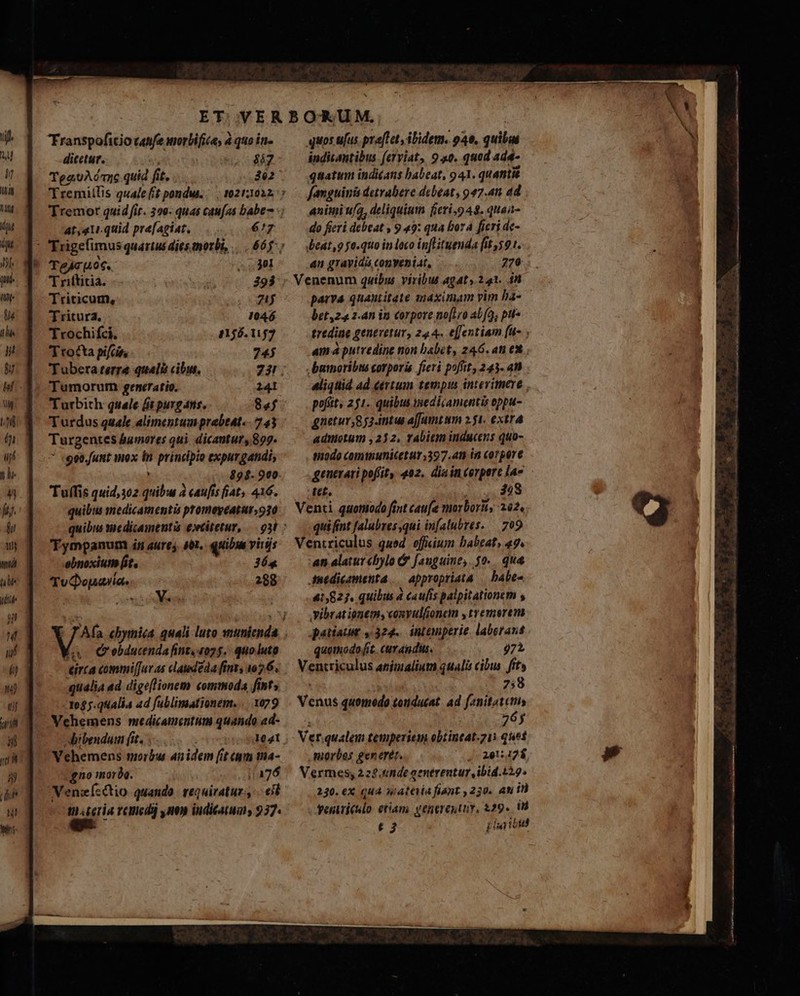 ET VERBORUM.
Transpositio causæ morbificæ, à quo in-
dicetur. 857
Τραυλότης quid sit. 302
Tremillis quale sit pondus. 1021.1022
Tremor quid sit. 300. quas causas habe-
at, 411. quid præsagiat. 677
Trigesimus quartus dies morbi, 665
Τρισμός. 301
Tristitia. 393
Triticum, 715
Tritura, 1046
Trochisci. 1156.1157
Trocta piscis. 745
Tubera terræ qualis cibus, 731
Tumorum generatio. 241
Turbith quale sit purgans. 845
Turdus quale alimentum præbeat. 743
Turgentes humores qui dicantur, 899.
900. sunt mox in principio expurgandi,
898. 900
Tussis quid, 302 quibus à causis fiat, 416.
quibus medicamentis promoveatur, 930
quibus medicamentis excitetur, 931
Tympanum in aure, 101. quibus vitijs
obnoxium sit. 364
Τυφομανία. 288
V.
VAsa chymica quali luto munienda
& obducenda sint, 1075. quo luto
circa commissuras claudēda sint, 1076.
qualia ad digestionem commoda sint,
1085. qualia ad sublimationem. 1079
Vehemens medicamentum quando ad-
hibendum sit. 1041
Vehemens morbus an idem sit cum ma-
gno morbo. 176
Venæsectio quando requiratur, est
materia remedij, non indicatum, 937.
quos usus præstet, ibidem. 940. quibus
indicantibus serviat, 940. quod ade-
quatum indicans habeat, 941. quantū
sanguinis detrahere debeat, 947. an ad
animi usq, deliquium fieri. 948. quan-
do fieri debeat, 949. qua hora fieri de-
beat, 950. quo in loco instituenda sit, 591.
an gravidis conveniat, 770
Venenum quibus viribus agat, 241. in
parva quantitate maximam vim ha-
bet, 242. an in corpore nostro absq, pu-
tredine generetur, 244. essentiam su-
am à putredine non habet, 246. an ex
humoribus corporis fieri possit, 245. an
aliquid ad certum tempus interimere
possit, 251. quibus medicamentis oppu-
gnetur, 853. intus assumtum 251. extra
admotum, 252. rabiem inducens quo-
modo communicetur, 397. an in corpore
generari possit, 402. diu in corpore la-
tet. 398
Venti quomodo sint causæ morborū, 202.
qui sint salubres, qui insalubres. 709
Ventriculus quod officium habeat, 49.
an alatur chylo & sanguine, 50. quæ
medicamenta appropriata habe-
at, 823. quibus à causis palpitationem,
vibrationem, convulsionem, tremorem
patiatur, 324. intemperie laborans
quomodo sit curandus. 972
Ventriculus animalium qualis cibus sit,
738
Venus quomodo conducat ad sanitatem,
765
Ver qualem temperiem obtineat. 711 quos
morbos generet. 201. 178
Vermes, 228. unde generentur, ibid. 229.
230. ex qua materia fiant, 230. an in
ventriculo etiam generentur, 229. in
t 3 pluribus